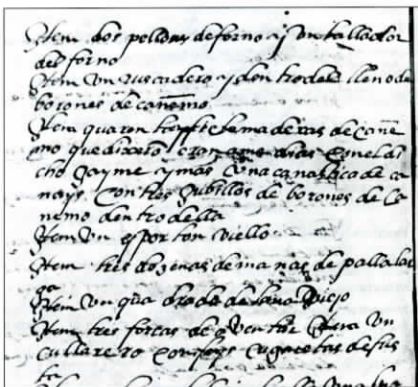 Item dos pellones de forno y un tallador
del forno
Item un ruscadero y dentro dell lleno de
borones de cañemo
Item quarenta y siete maderas de cañe
mo que dixeron eran a medias con el di
cho Jayme y mas una canastica de ca
nays con tres jubillos de borones de ca
nemo dentro della
Item un esporton viello
Item tres dozenas de manac de palla lar
ga
Item un quadrado de lana viejo
Item tres forcas de aventar Item un
cullarero con cugaretas de fus
te